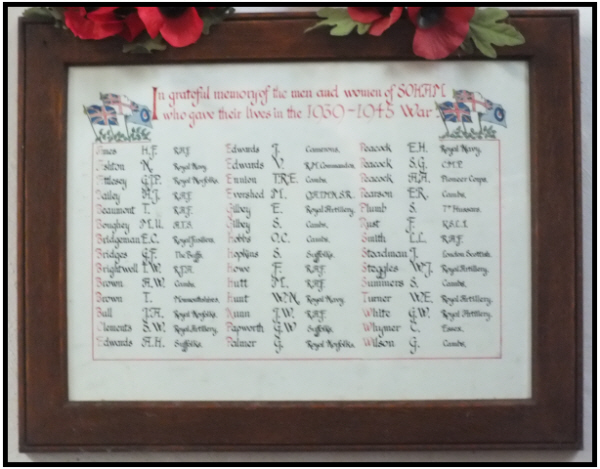 In grateful memory of the men and women of SOHAM
who gave their lives in the 1939-1945 War
Ames H.F. R.A.F. Edwards J. Camerons. Peacock E.H. Royal Navy.
Ashton R. Royal Navy. Edwards V. R.M. Commandos. Peacock S.G. C.M.P.
Attlesey G.T.P. Royal Norfolks. Ennion T.R.E. Cambs. Peacock A.A. Pioneer Corps.
Bailey A.J. R.A.F. Evershed M. Q.A.I.M.N.S.R. Pearson E.R. Cambs.
Beaumont T. R.A.F. Gilbey E. Royal Artillery. Plumb S. 7th Hussars.
Boughey M.U. A.T.S. Gilbey S. Cambs. Rust F. K.S.L.I.
Bridgeman E.C. Royal Fusiliers. Hobbs O.C. Cambs. Smith L.L. R.A.F.
Bridges G.F. The Buffs. Hopkins S. Suffolks. Steadman J. London Scottish.
Brightwell I.W. R.F.A. Howe F. R.A.F. Steggles W.J. Royal Artillery.
Brown A.W. Cambs. Hutt M. R.A.F. Summers S. Cambs.
Brown T. Monmouthshires. Hunt W.N. Royal Navy. Turner W.E. Royal Artillery.
Bull J.A. Royal Norfolks. Nunn J.W. R.A.F. White G.W. Royal Artillery.
Clements S.W. Royal Artillery. Papworth G.W. Suffolks. Whymer C. Essex.
Edwards A.H. Suffolks. Palmer G. Royal Norfolks. Wilson G. Cambs.